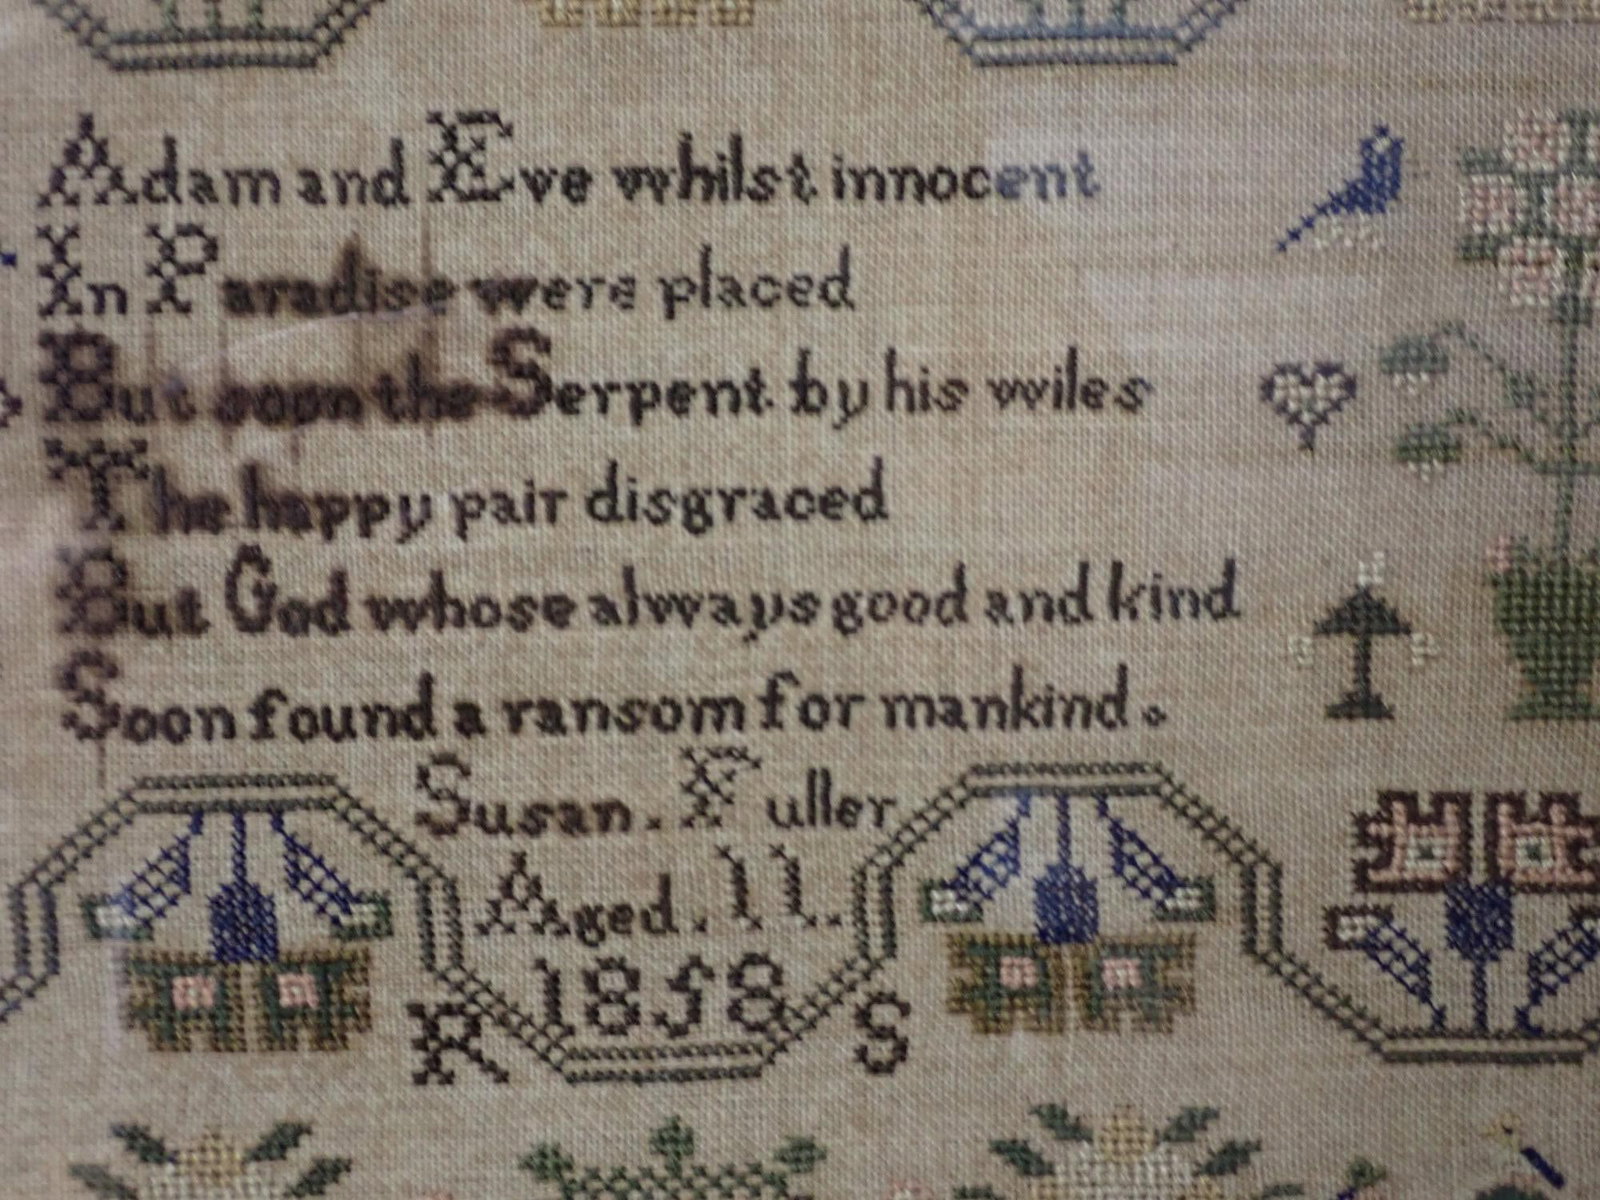 Adam and Eve whilst innocent
In Paradise were placed
But soon the Serpent by his wiles
The happy pair disgraced
But God whose always good and kind
Soon found a ransom for mankind.
Susan. Fuller
Aged. 11.
1858
R S